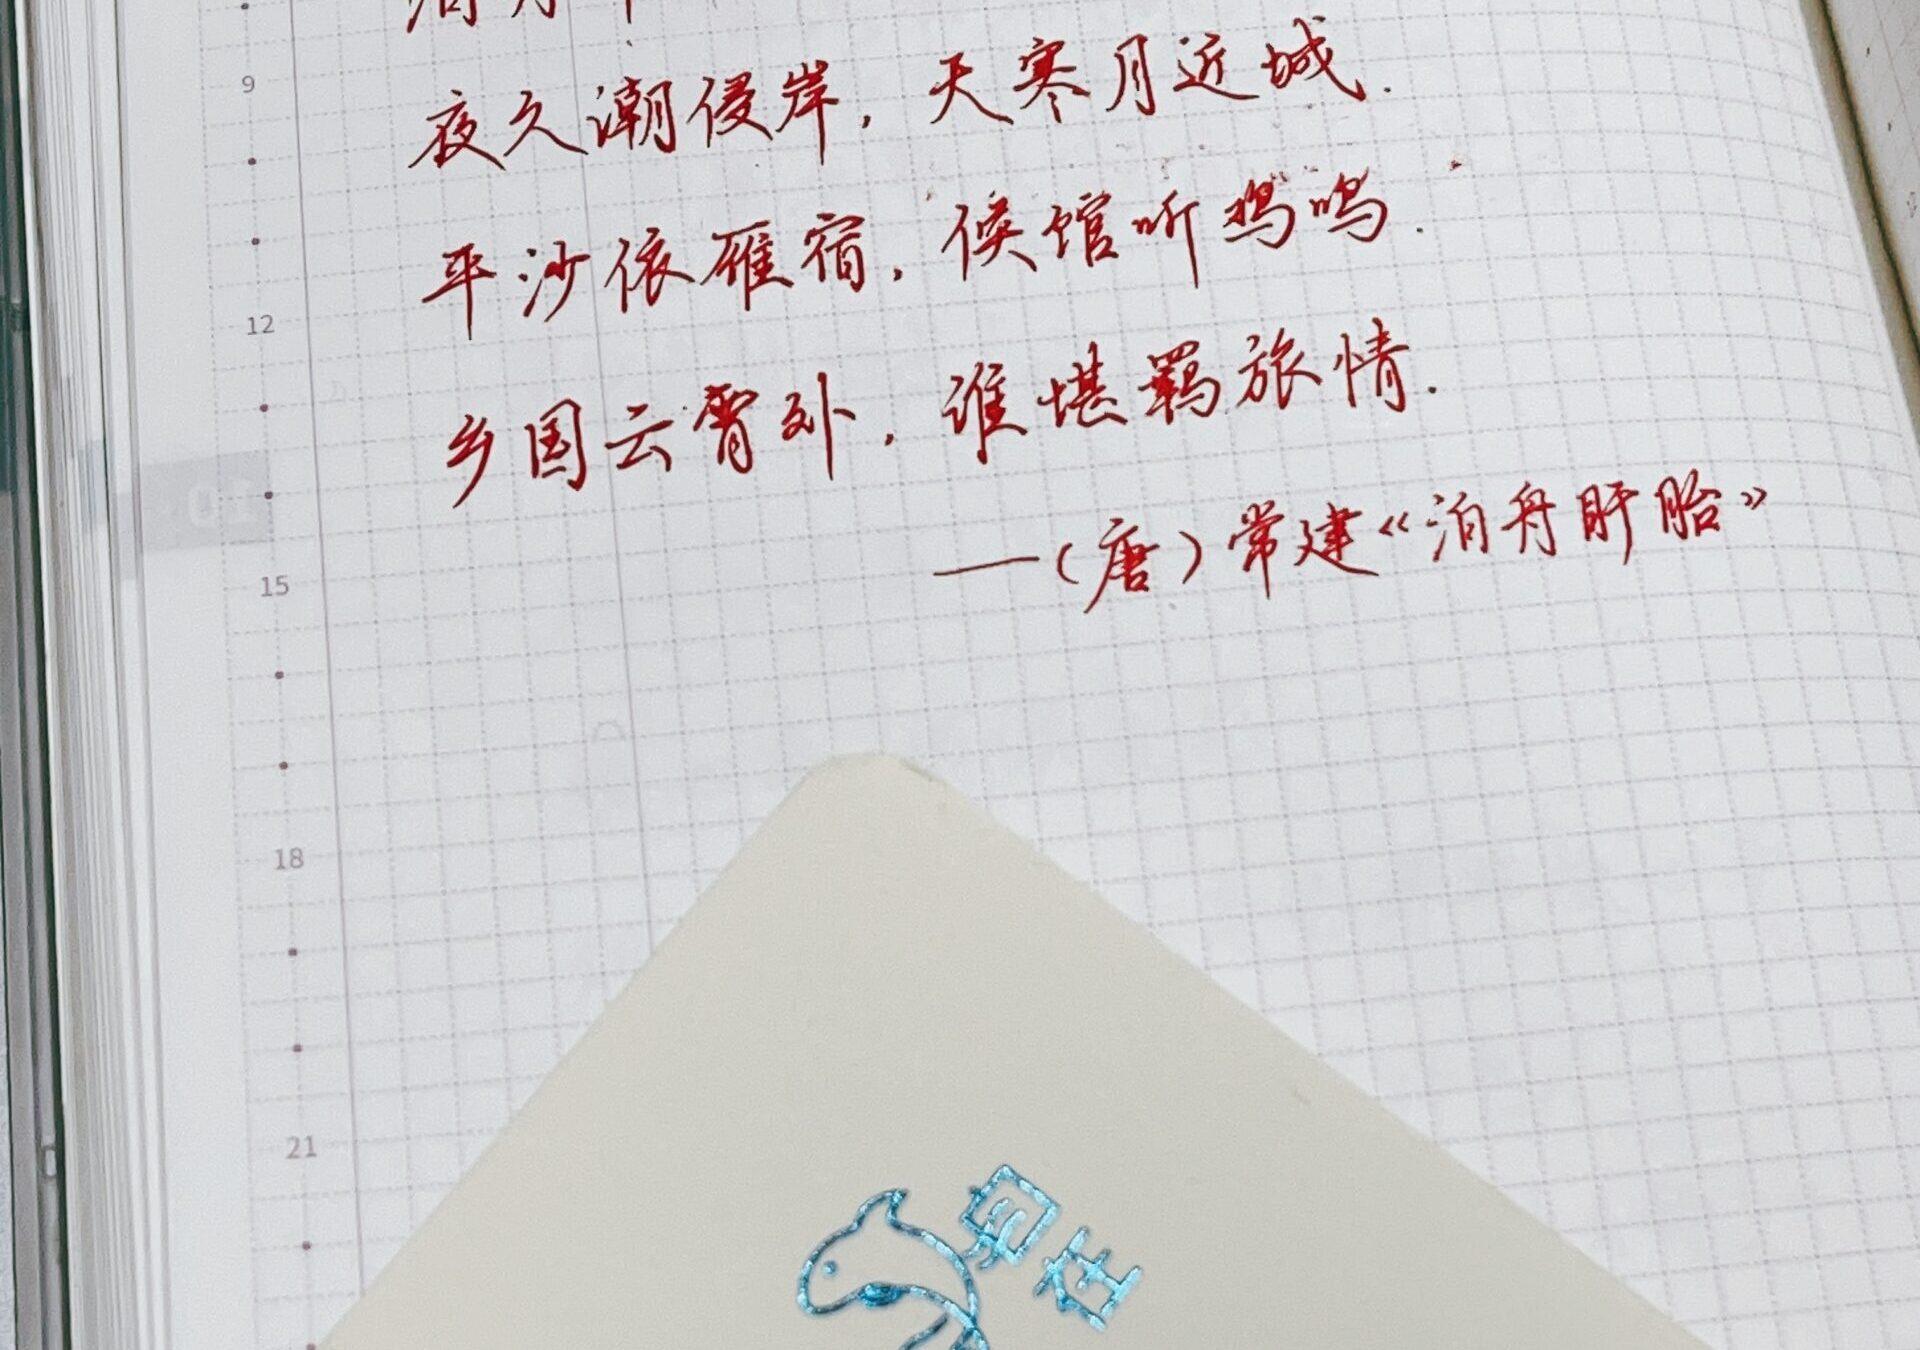 夜久潮侵岸,天寒月近城.
平沙依雁宿,候馆听鸡鸣.
乡国云霄外,谁堪羁旅情.
——(唐)常建《泊舟盱眙》
9
12
15
18
21
自在